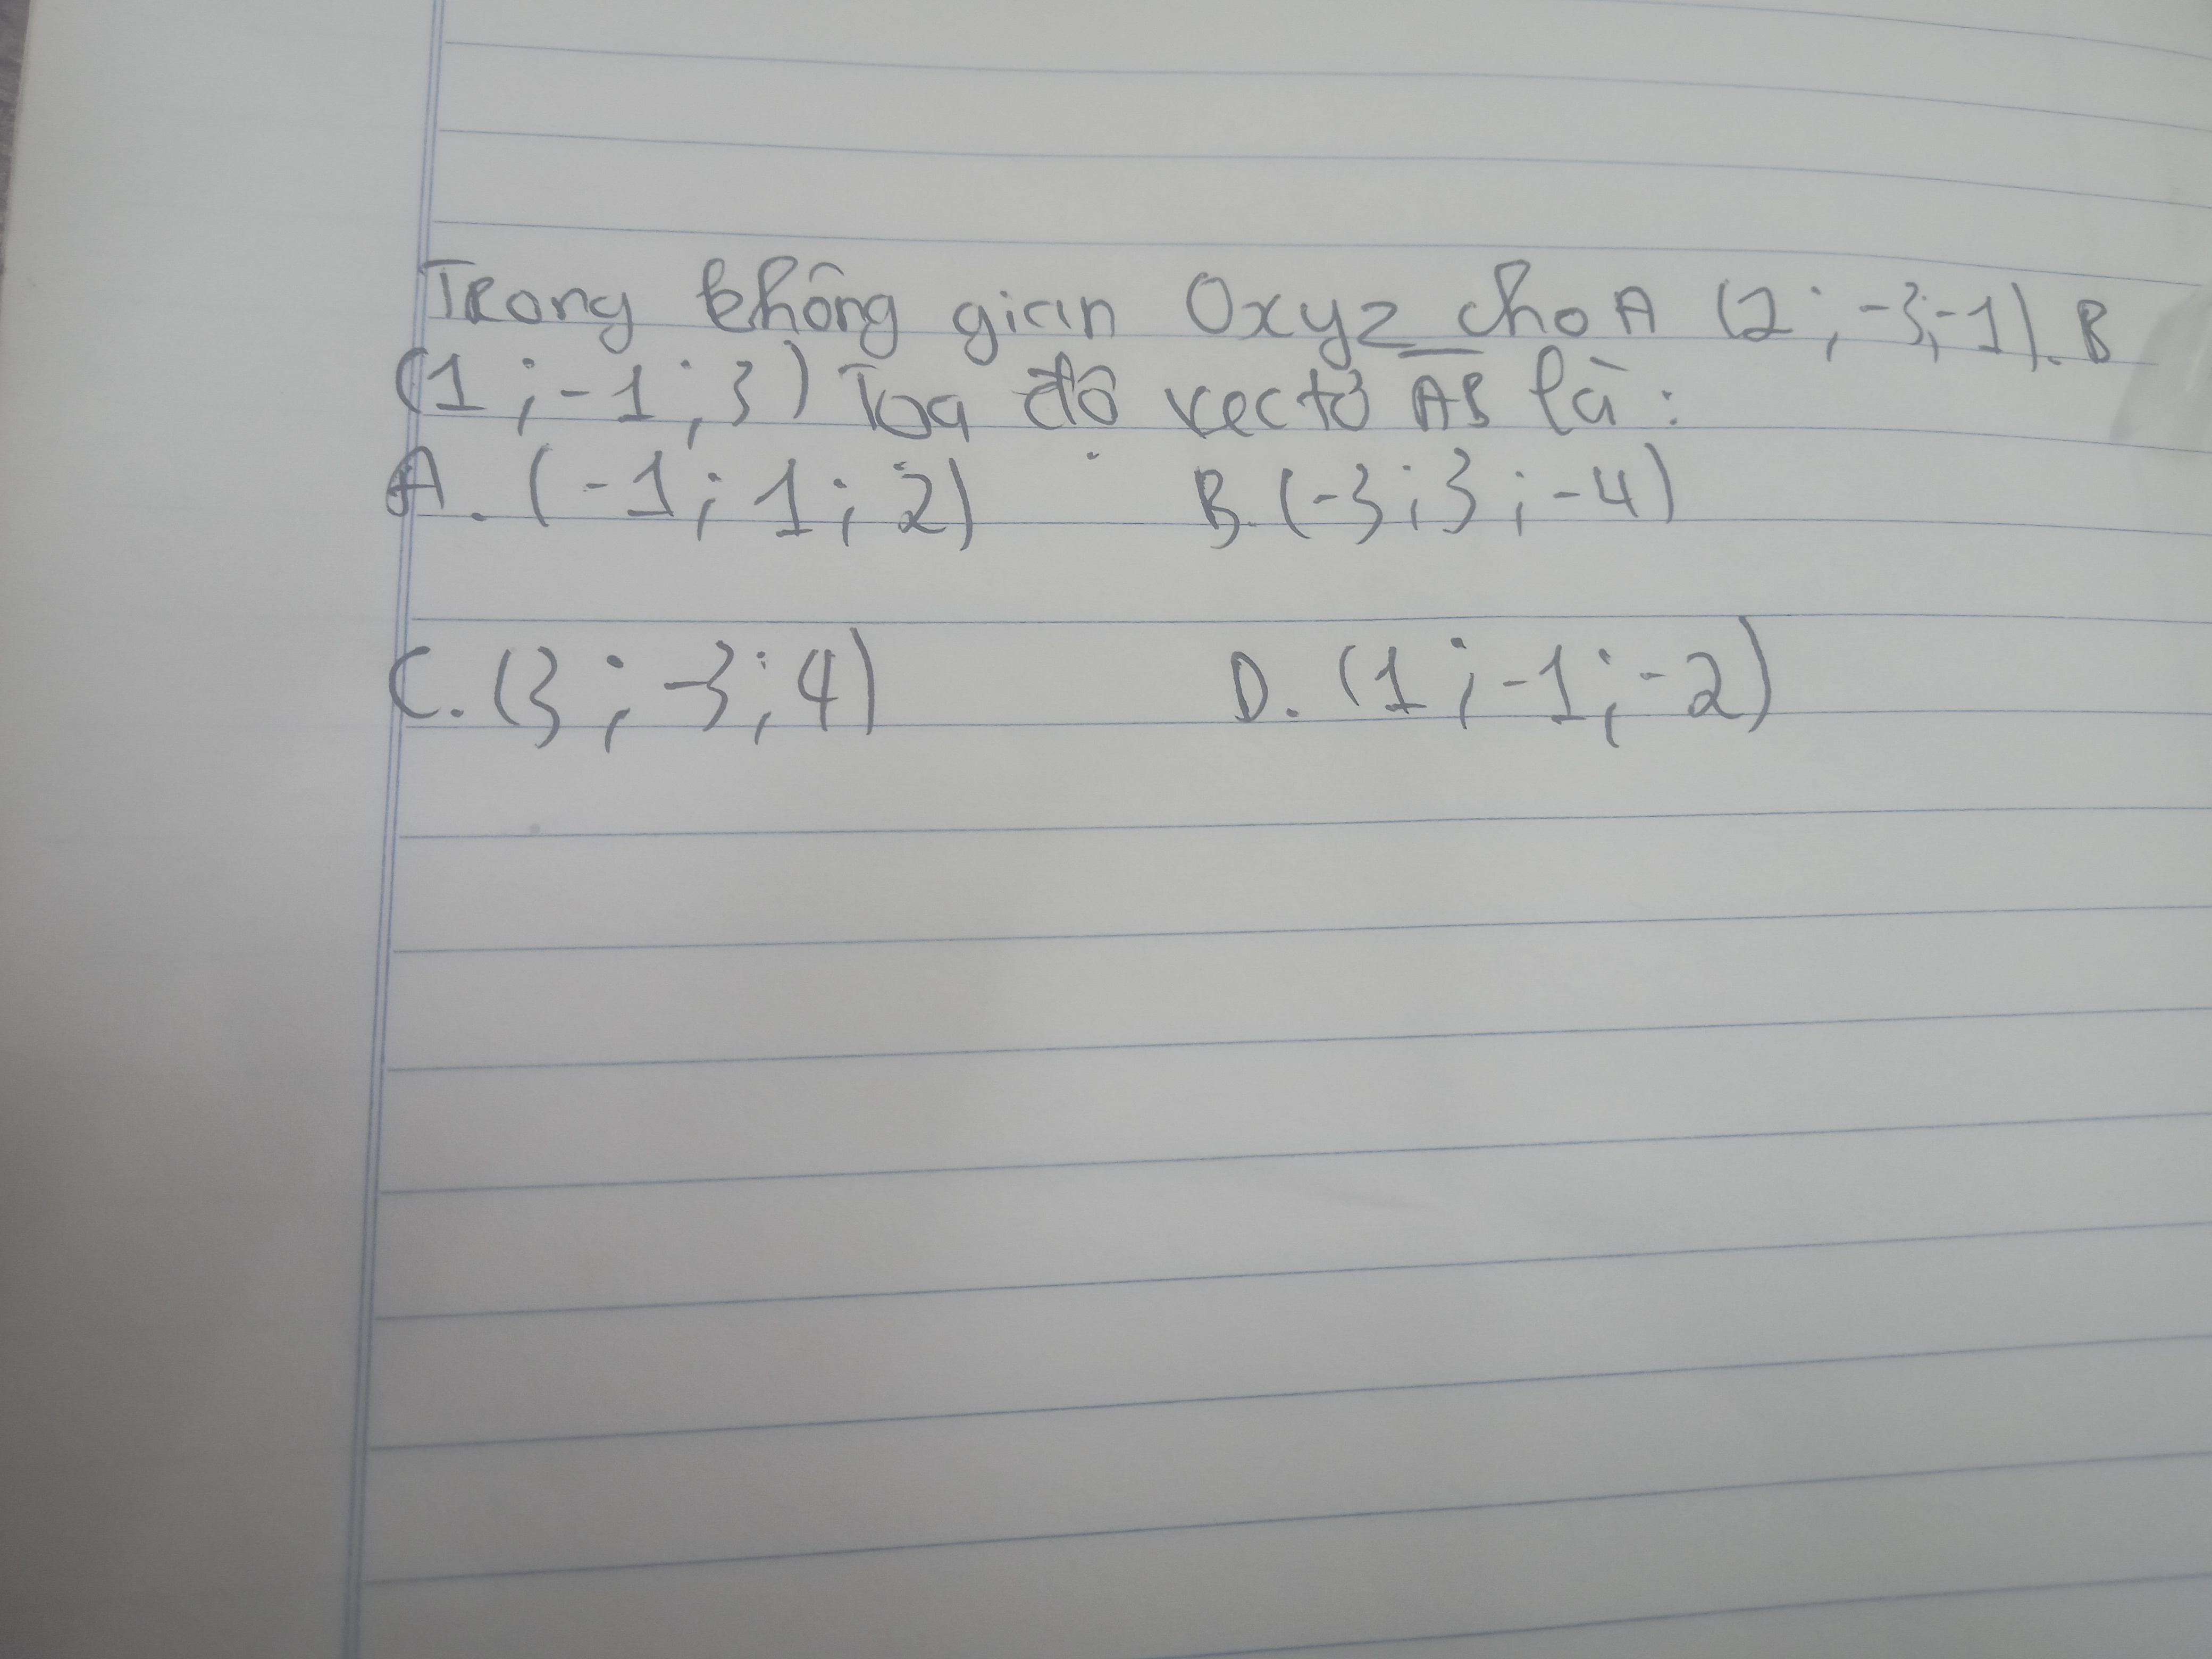 Trong không gian Oxyz cho A (2 ; -3; -1). B
(1 ; -1 ; 3) Toạ độ vectơ AB là :
A. (-1 ; 1 ; 2) B. (-3 ; 3 ; -4)
C. (3 ; -3 ; 4) D. (1 ; -1 ; -2)